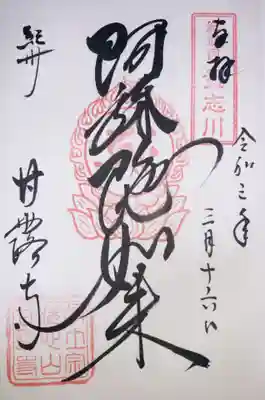 奉拝
志川
令和三年
三月十六日
阿弥陀如来
紀州
甘露寺